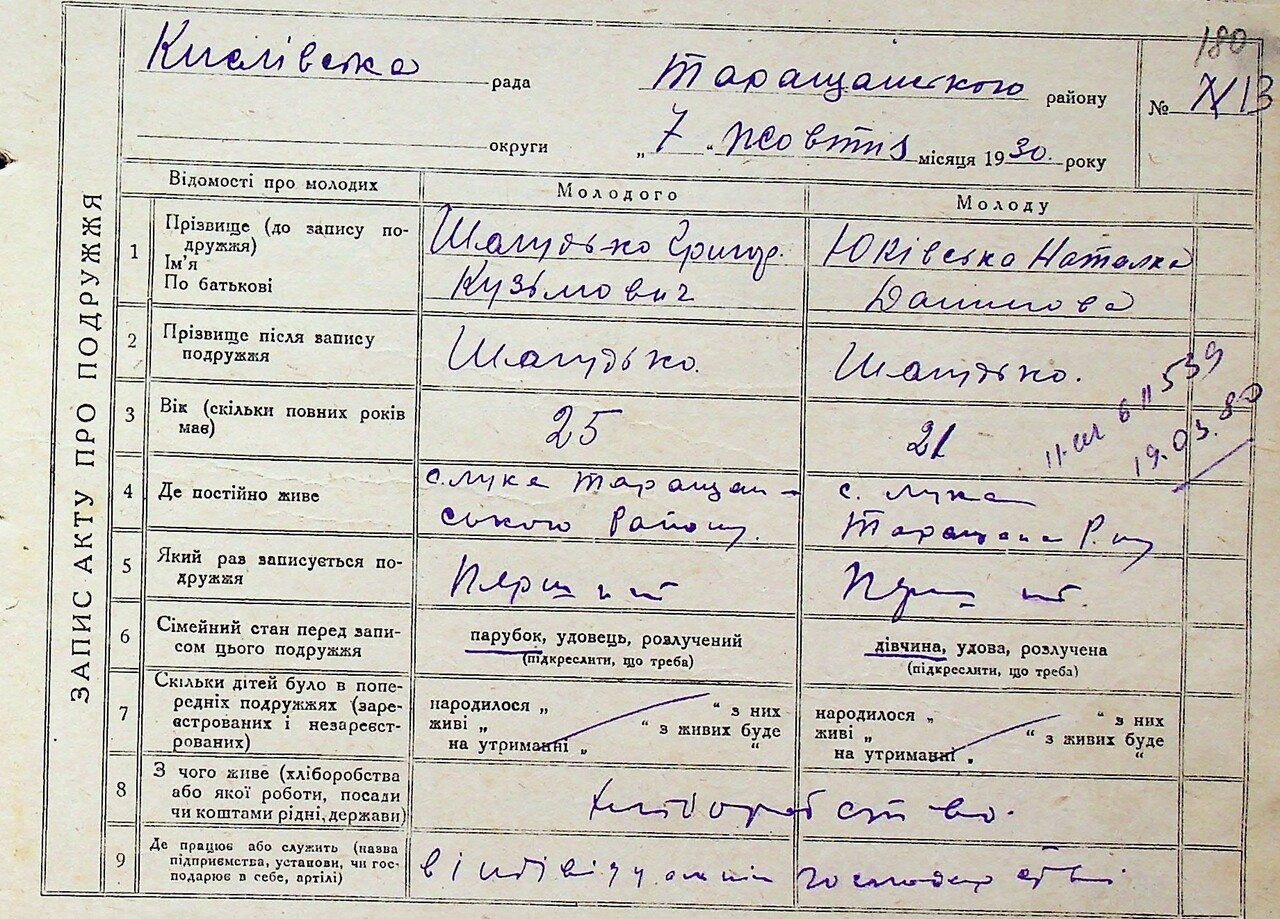 180
Кислівська рада Таращанського району № 13
округи „ 7 “ Жовтня місяця 1930 року
ЗАПИС АКТУ ПРО ПОДРУЖЖЯ
Відомості про молодих Молодого Молоду
1 Прізвище (до запису по-
дружжя)
Ім'я
По батькові
Шагудько Григор.
Кузьмович
Юківська Наталка
Данилова
2 Прізвище після запису
подружжя
Шагудько.
Шагудько.
3 Вік (скільки повних років
має)
25
21
539
19.03.80
4 Де постійно живе
с. Лука Таращан-
ського Району.
с. Лука
Таращан
5 Який раз записується по-
дружжя
Перший
Перший.
6 Сімейний стан перед запи-
сом цього подружжя
парубок, удовець, розлучений
(підкреслити, що треба)
дівчина, удова, розлучена
(підкреслити, що треба)
7 Скільки дітей було в попе-
редніх подружжях (заре-
єстрованих і незареєст-
рованих)
народилося „ “ з них
живі „ “ з живих буде
на утриманні „ “
народилося „ “ з них
живі „ “ з живих буде
на утриманні „ “
8 З чого живе (хліборобства
або якої роботи, посади
чи коштами рідні, держави)
хліборобство.
9 Де працює або служить (назва
підприємства, установи, чи гос-
подарює в себе, артілі)
в індівідуальнім господарстві